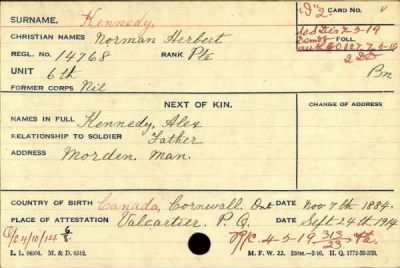 SURNAME. Kennedy. "D"2 CARD NO.
CHRISTIAN NAMES Norman Herbert
REGL. NO. 14768 RANK Pte
FOLL.
UNIT 6th Bn
FORMER CORPS Nil
NEXT OF KIN. CHANGE OF ADDRESS
NAMES IN FULL Kennedy, Alex
RELATIONSHIP TO SOLDIER Father
ADDRESS Morden. Man.
COUNTRY OF BIRTH Canada, Cornwall, Ont DATE Nov 7th 1884.
PLACE OF ATTESTATION Valcartier, P.Q. DATE Sept 24th 1914
O/S 4/10/14 4-5-19 313/23
L. L. 94504. M. & D. 6512. M. F. W. 22.